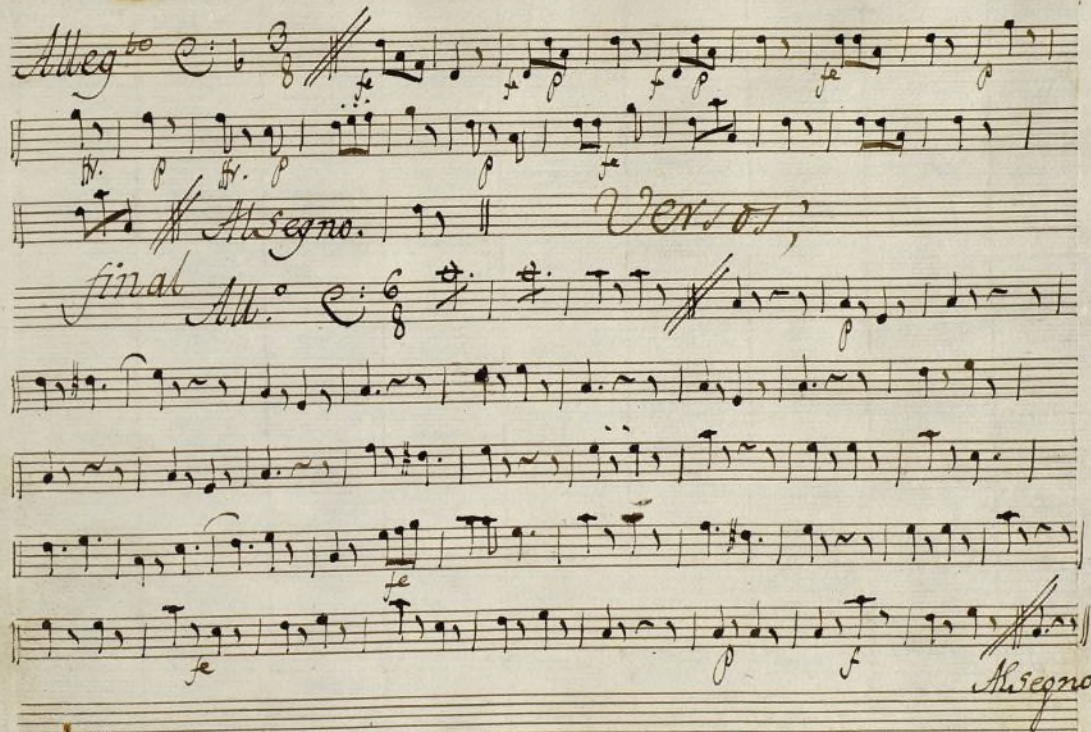 Alleg^to 3 8
fe fe p fe p fe p
p p p fe
Al segno. Versos;
final All.º 6 8
p
fe
fe p f
Al segno